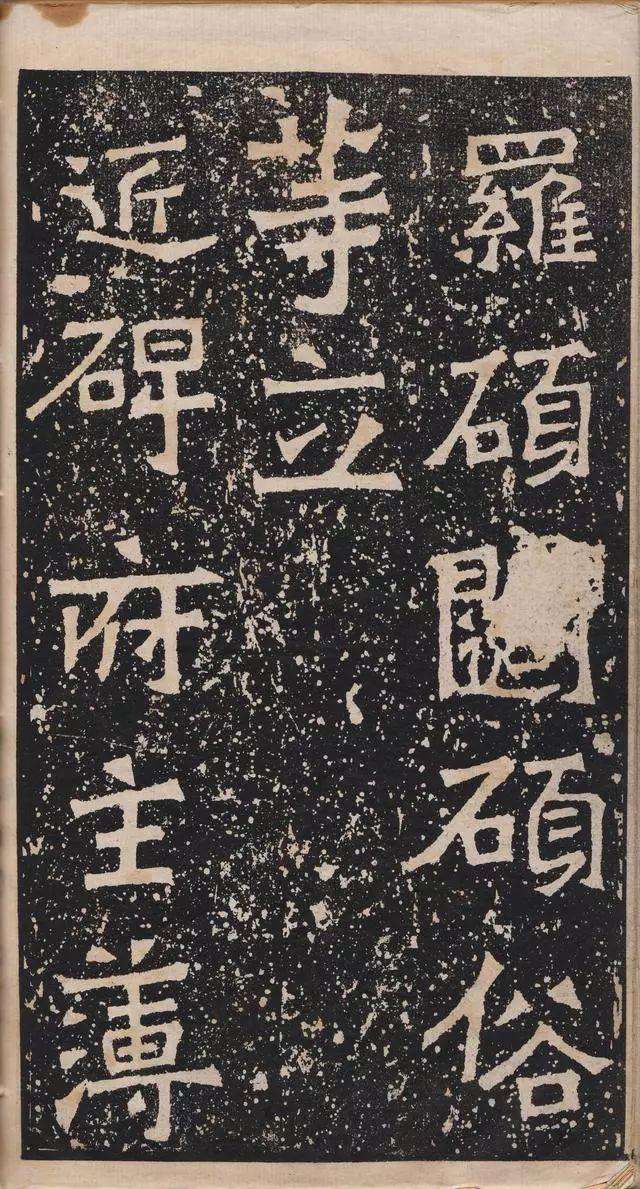 羅碩碩俗
等立
近碑府主薄